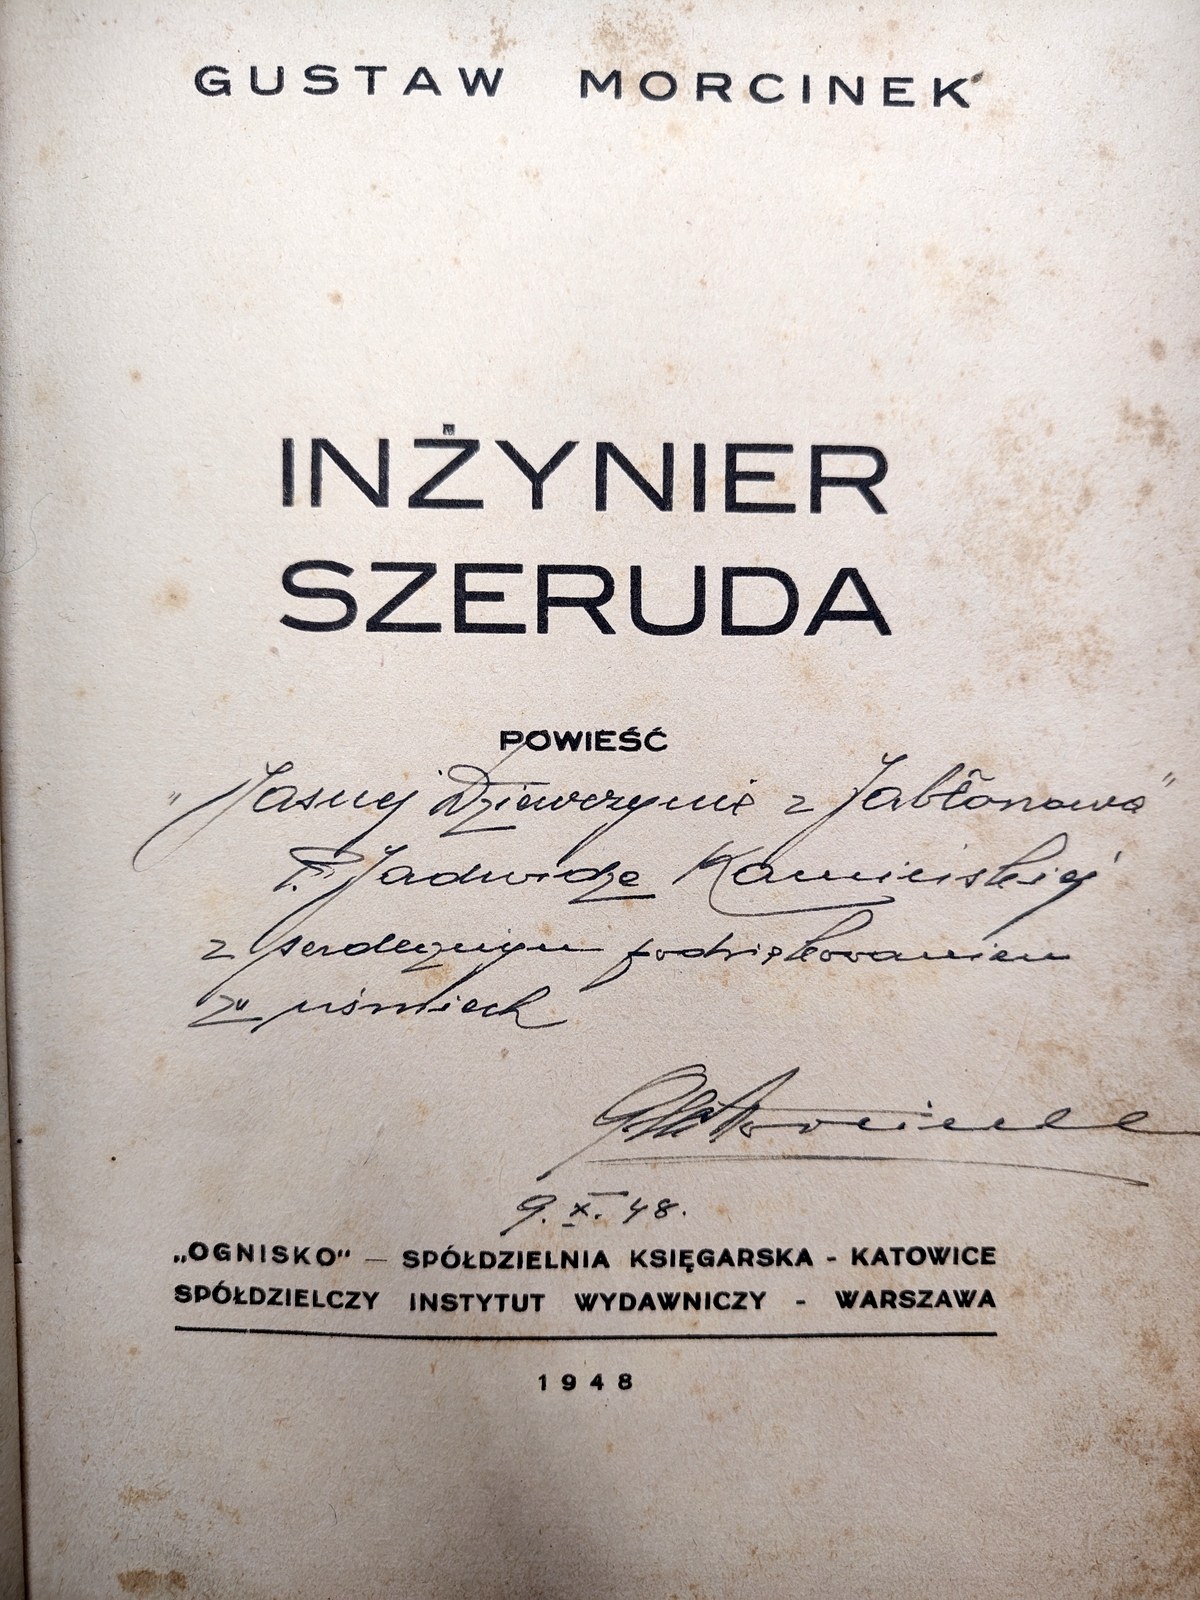 GUSTAW MORCINEK
INŻYNIER
SZERUDA
POWIEŚĆ
"Jasnej Dziewczynie z Jabłonowa"
P. Jadwidze Kamińskiej
z serdecznym podziękowaniem
za uśmiech
G. Morcinek
9.X.48.
„OGNISKO" — SPÓŁDZIELNIA KSIĘGARSKA - KATOWICE
SPÓŁDZIELCZY INSTYTUT WYDAWNICZY - WARSZAWA
1948